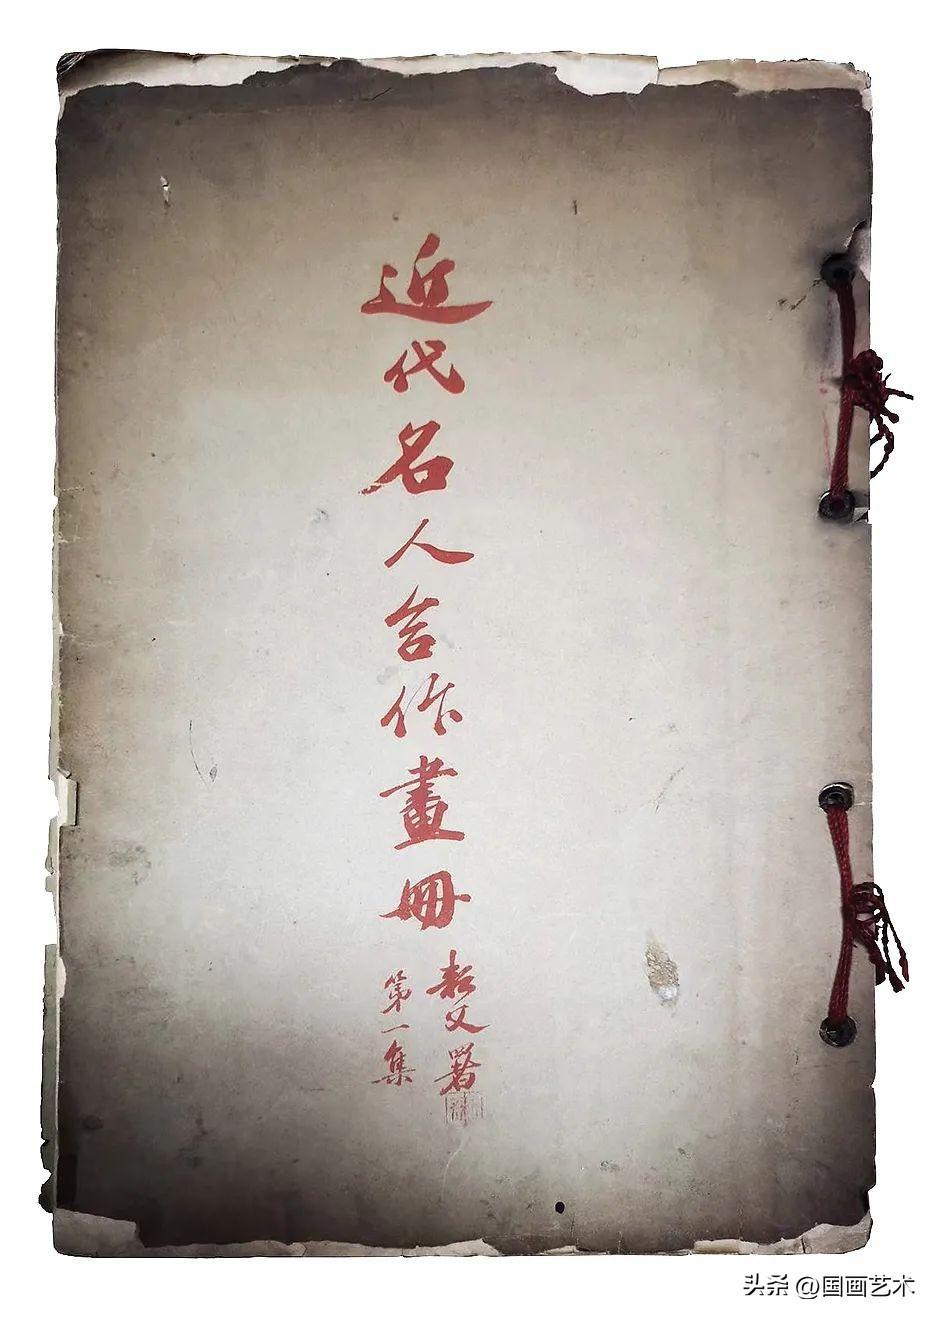 近代名人合作畫冊
第一集
署
头条 @国画艺术